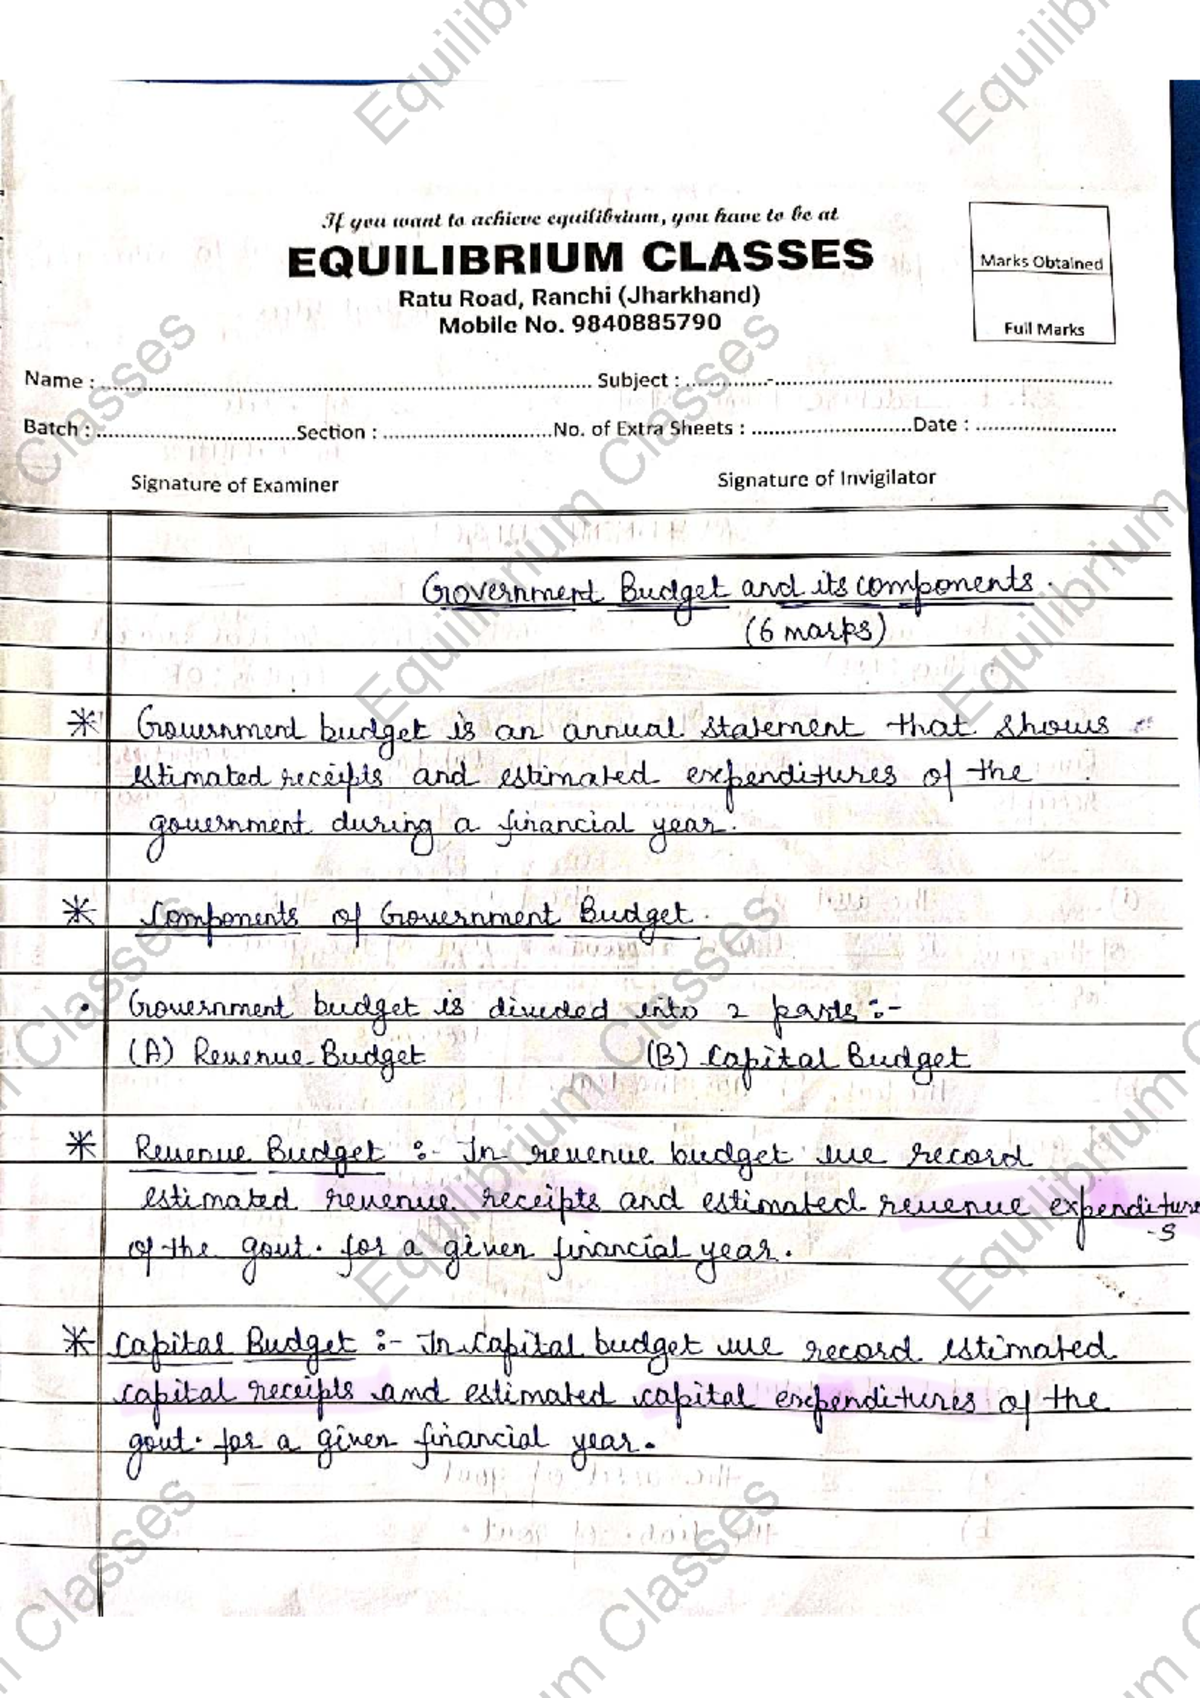 If you want to achieve equilibrium, you have to be at
EQUILIBRIUM CLASSES
Ratu Road, Ranchi (Jharkhand)
Mobile No. 9840885790
Marks Obtained
Full Marks
Name : Subject :
Batch : Section : No. of Extra Sheets : Date :
Signature of Examiner Signature of Invigilator
Government Budget and its components.
(6 marks)
* Government budget is an annual statement that shows
estimated receipts and estimated expenditures of the
government during a financial year.
* Components of Government Budget.
• Government budget is divided into 2 parts :-
(A) Revenue Budget (B) Capital Budget
* Revenue Budget :- In revenue budget we record
estimated revenue receipts and estimated revenue expenditure
-s
of the govt. for a given financial year.
* Capital Budget :- In capital budget we record estimated
capital receipts and estimated capital expenditures of the
govt. for a given financial year.
Equilibrium Classes